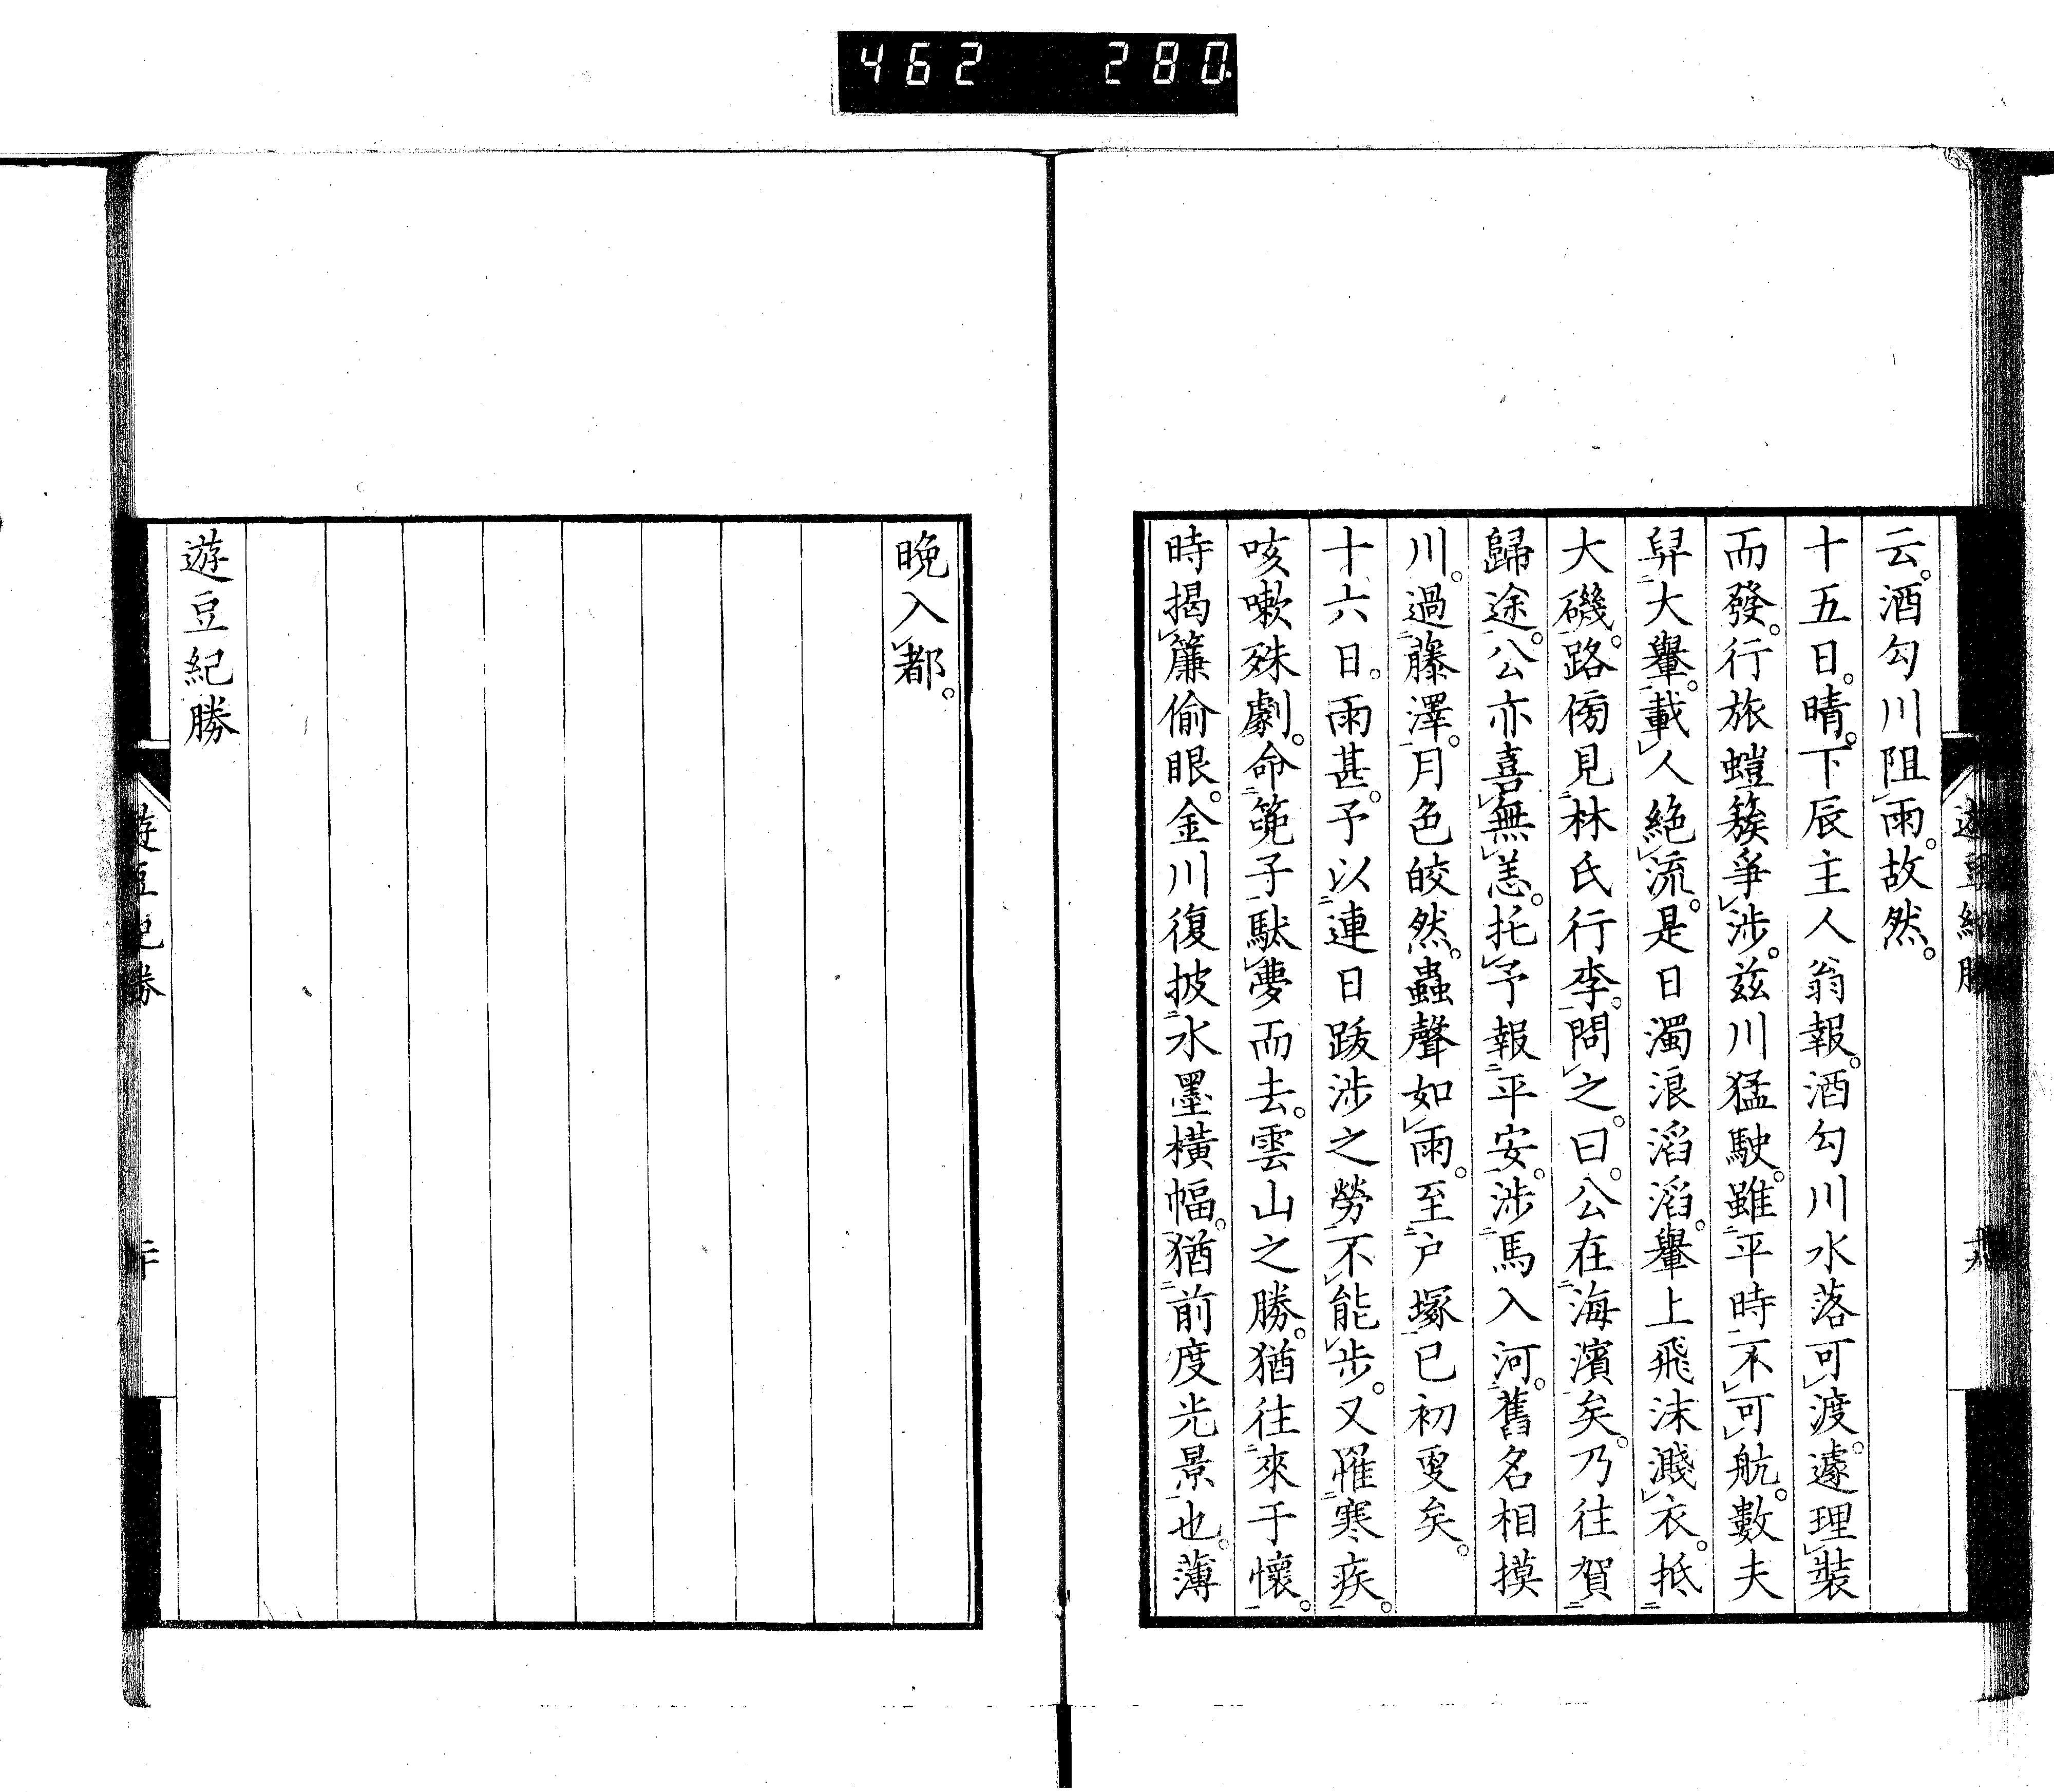 462 280
云。酒勾川阻雨。故然。
十五日。晴。下辰主人翁報。酒勾川水落可渡。遽理裝
而發。行旅螘簇爭涉。茲川猛駛。雖平時不可航。數夫
舁大轝。載人絕流。是日濁浪滔滔。轝上飛沫濺衣。抵
大磯。路傍見林氏行李。問之。曰。公在海濱矣。乃往賀
歸途。公亦喜無恙。托予報平安。涉馬入河。舊名相摸
川。過藤澤。月色皎然。蟲聲如雨。至戶塚已初更矣。
十六日。雨甚。予以連日跋涉之勞不能步。又罹寒疾。
咳嗽殊劇。命篼子馱夢而去。雲山之勝。猶往來于懷。
時揭簾偷眼。金川復披水墨橫幅。猶前度光景也。薄
晚入都。
遊豆紀勝
遊豆紀勝